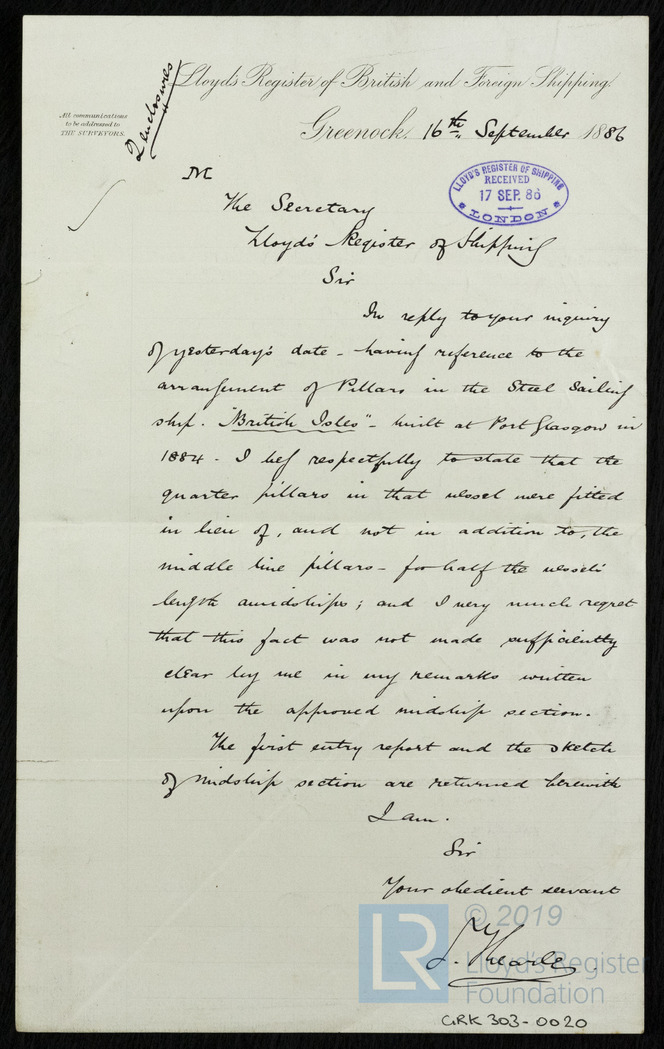 Lloyd's Register of British and Foreign Shipping.
2 enclosures
All communications
to be addressed to
THE SURVEYORS.
Greenock, 16th September 1886
LLOYD'S REGISTER OF SHIPPING
RECEIVED
17 SEP. 86
LONDON
M
The Secretary
Lloyd's Register of Shipping
Sir
In reply to your inquiry
of yesterday's date - having reference to the
arrangement of Pillars in the Steel Sailing
ship. "British Isles" - built at Port Glasgow in
1884 - I beg respectfully to state that the
quarter pillars in that vessel were fitted
in lieu of, and not in addition to, the
middle line pillars - for half the vessel's
length amidships; and I very much regret
that this fact was not made sufficiently
clear by me in my remarks written
upon the approved midship section.
The first entry report and the sketch
of midship section are returned herewith
I am.
Sir
Your obedient servant
S. Thearle
LR
© 2019
Lloyd's Register
Foundation
GRK 303-0020